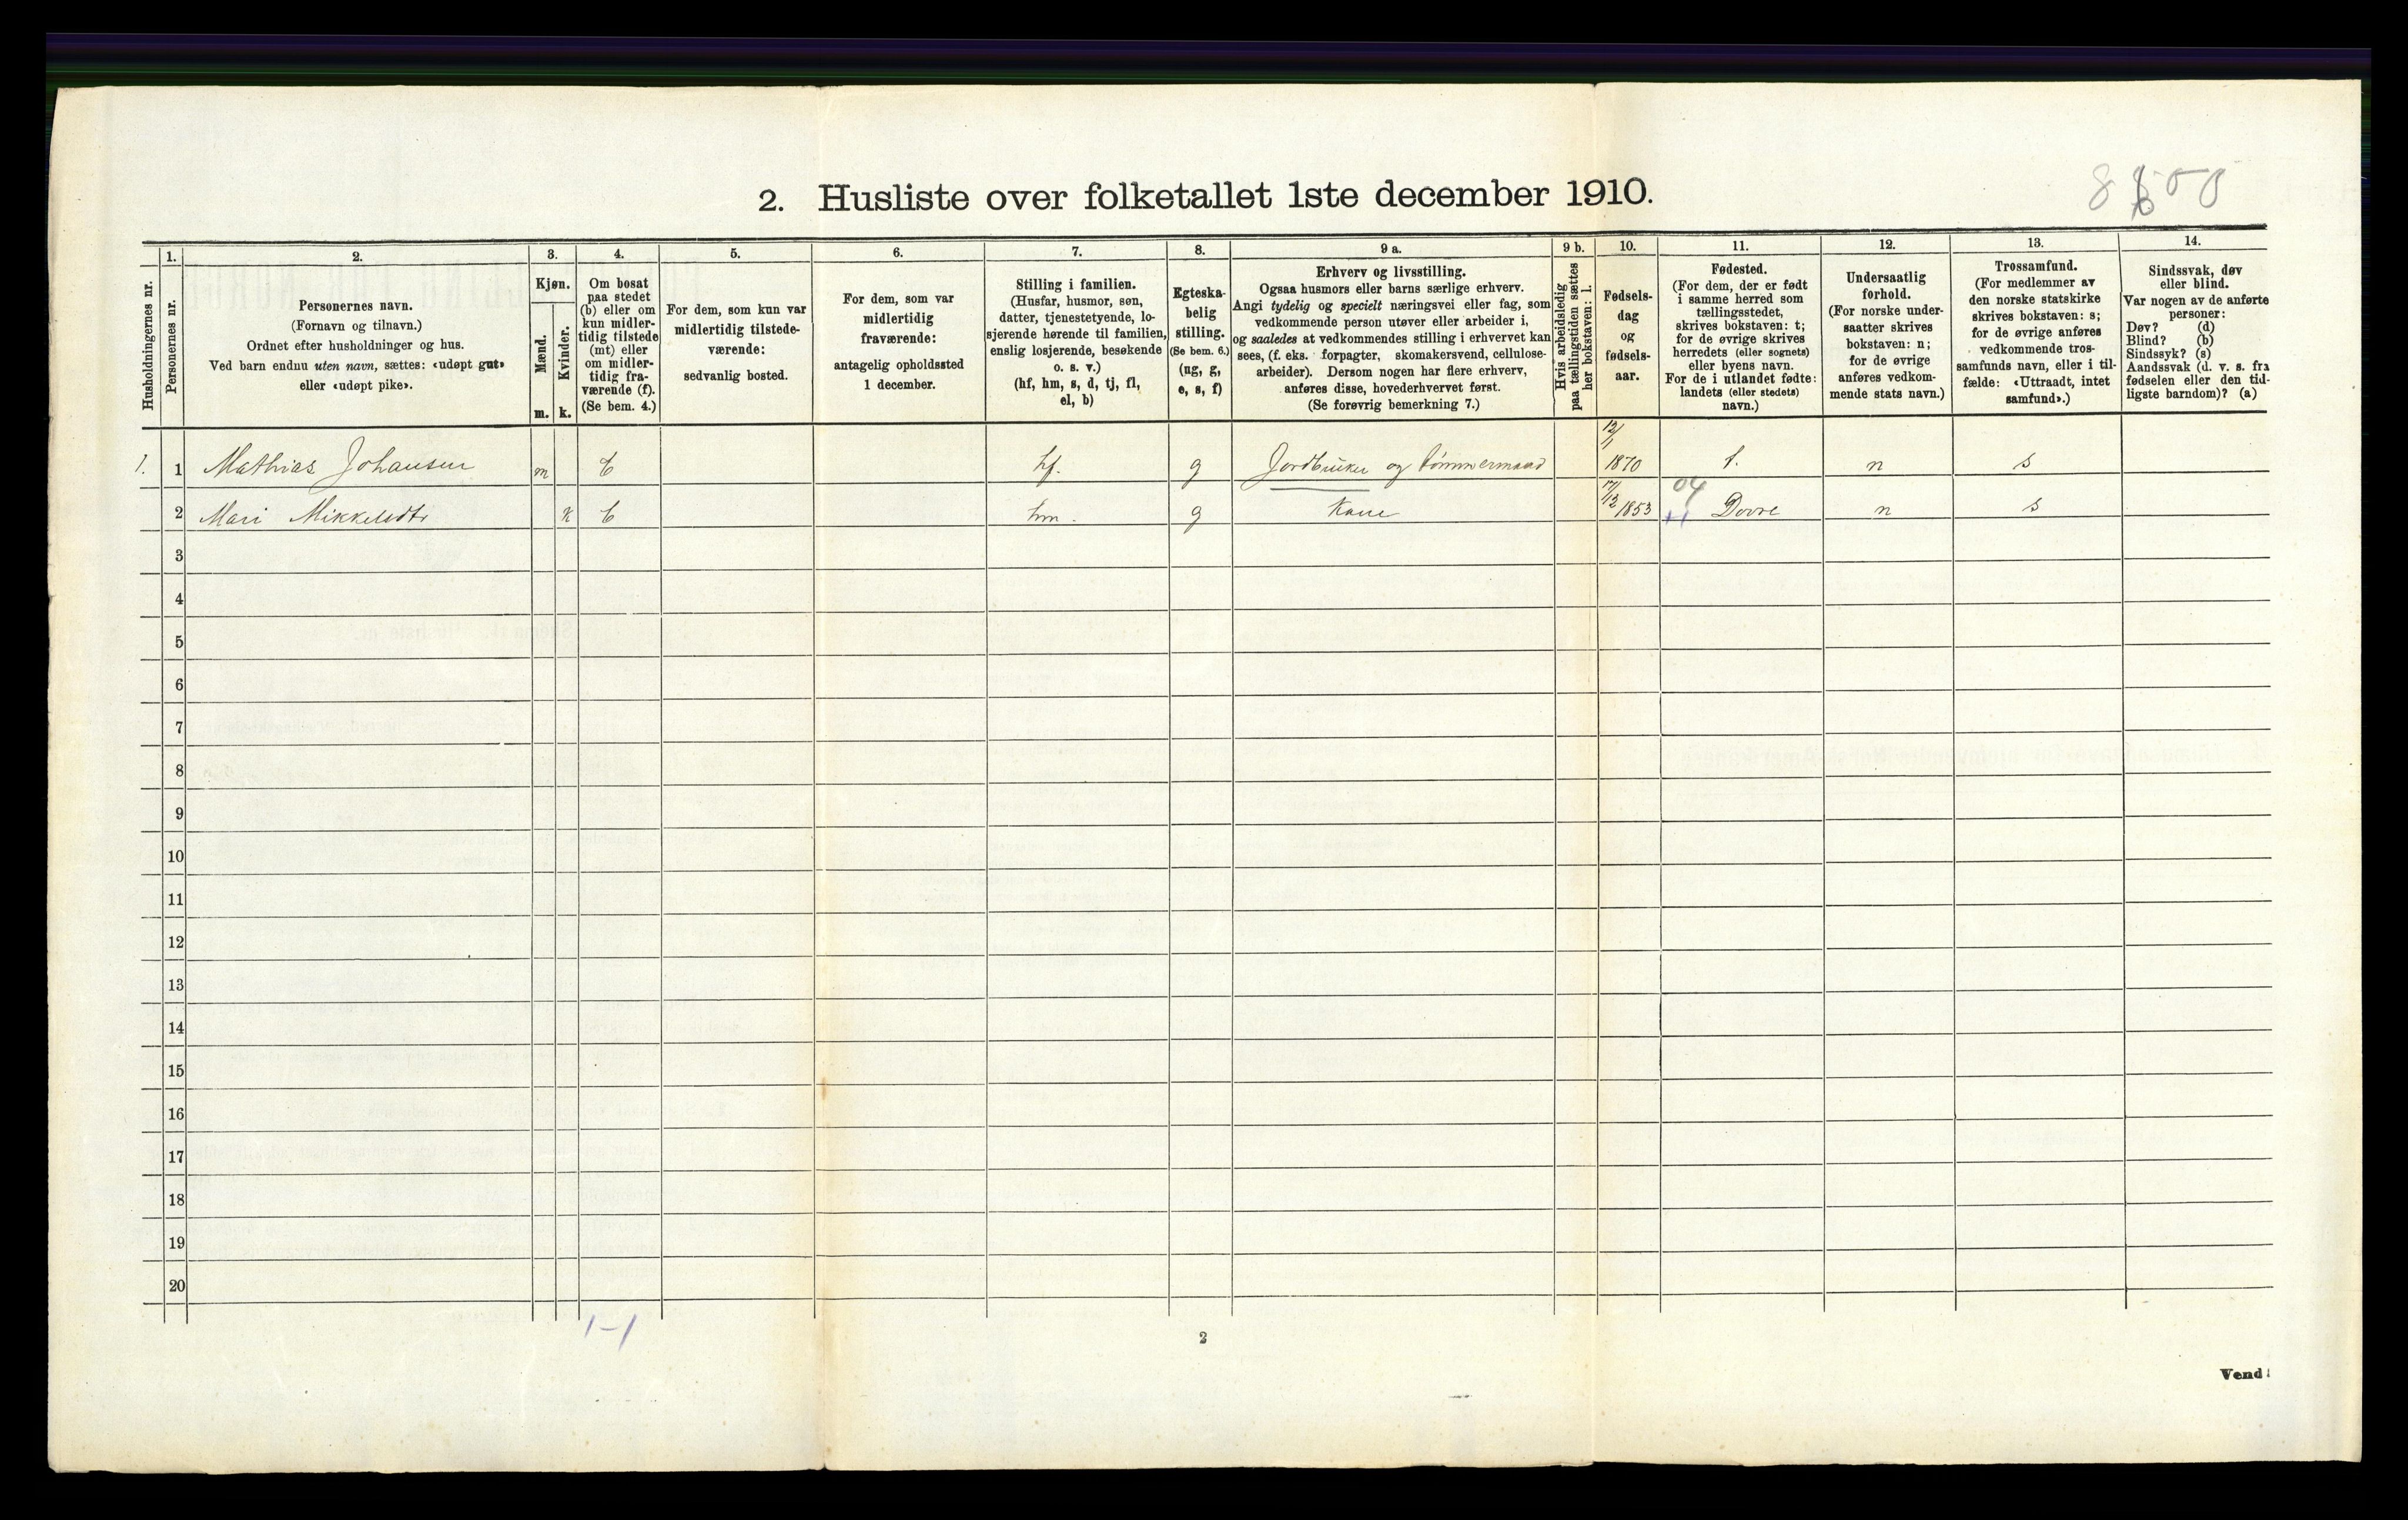 2. Husliste over folketallet 1ste december 1910.
Husholdningernes nr.
1.
Personernes nr.
2.
Personernes navn.
(Fornavn og tilnavn.)
Ordnet efter husholdninger og hus.
Ved barn endnu uten navn, sættes: «udøpt gut»
eller «udøpt pike».
3.
Kjøn.
Mænd.
Kvinder.
m. k.
4.
Om bosat
paa stedet
(b) eller om
kun midler-
tidig tilstede
(mt) eller
om midler-
tidig fra-
værende (f).
(Se bem. 4.)
5.
For dem, som kun var
midlertidig tilstede-
værende:
sedvanlig bosted.
6.
For dem, som var
midlertidig
fraværende:
antagelig opholdssted
1 december.
7.
Stilling i familien.
(Husfar, husmor, søn,
datter, tjenestetyende, lo-
sjerende hørende til familien,
enslig losjerende, besøkende
o. s. v.)
(hf, hm, s, d, tj, fl,
el, b)
8.
Egteska-
belig
stilling.
(Se bem. 6.)
(ug, g,
e, s, f)
9 a.
Erhverv og livsstilling.
Ogsaa husmors eller barns særlige erhverv.
Angi tydelig og specielt næringsvei eller fag, som
vedkommende person utøver eller arbeider i,
og saaledes at vedkommendes stilling i erhvervet kan
sees, (f. eks. forpagter, skomakersvend, cellulose-
arbeider). Dersom nogen har flere erhverv,
anføres disse, hovederhvervet først.
(Se forøvrig bemerkning 7.)
9 b.
Hvis arbeidsledig
paa tællingstiden sættes
her bokstaven: l.
10.
Fødsels-
dag
og
fødsels-
aar.
11.
Fødested.
(For dem, der er født
i samme herred som
tællingsstedet,
skrives bokstaven: t;
for de øvrige skrives
herredets (eller sognets)
eller byens navn.
For de i utlandet fødte:
landets (eller stedets)
navn.)
12.
Undersaatlig
forhold.
(For norske under-
saatter skrives
bokstaven: n;
for de øvrige
anføres vedkom-
mende stats navn.)
13.
Trossamfund.
(For medlemmer av
den norske statskirke
skrives bokstaven: s;
for de øvrige anføres
vedkommende tros-
samfunds navn, eller i til-
fælde: «Uttraadt, intet
samfund».)
14.
Sindssvak, døv
eller blind.
Var nogen av de anførte
personer:
Døv? (d)
Blind? (b)
Sindssyk? (s)
Aandssvak (d. v. s. fra
fødselen eller den tid-
ligste barndom)? (a)
1. 1 Mathias Johansen m b hf. g Jordbruker og tømmermand 12/1 1870 t. n s
2 Mari Mikkelsdtr k b hm. g Kone 17/12 1853 04 Dovre n s
3
4
5
6
7
8
9
10
11
12
13
14
15
16
17
18
19
20
1-1
2
Vend!